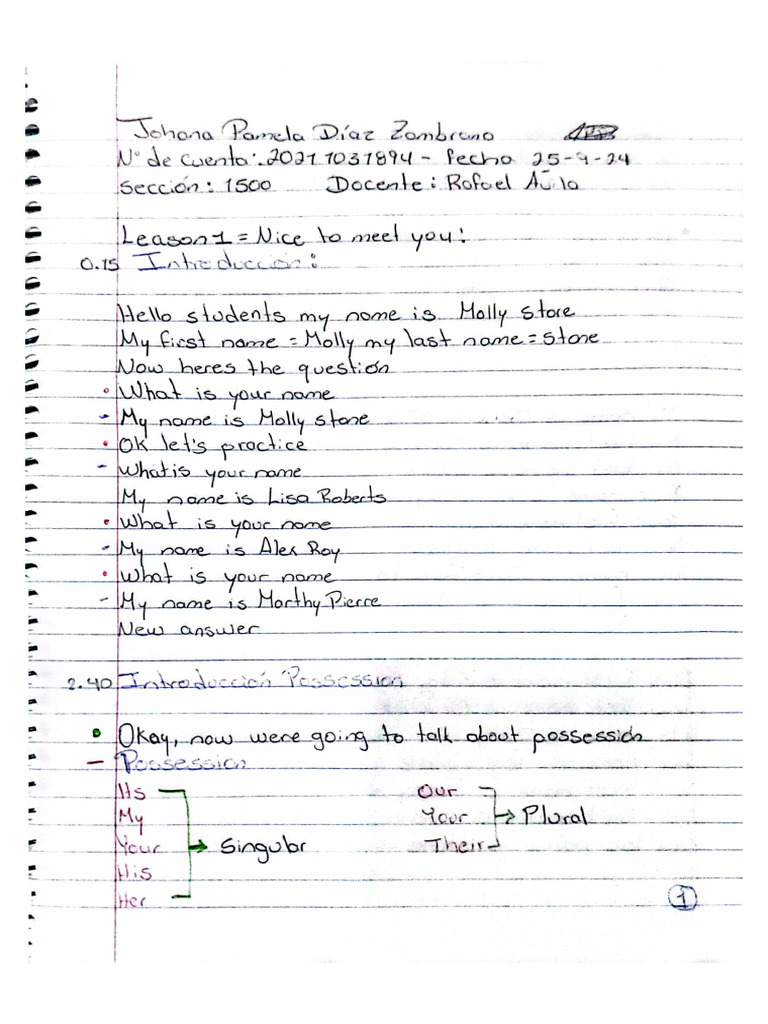 Johana Pamela Díaz Zambrano
N° de cuenta: 20211031894 - Fecha 25-9-24
Sección: 1500 Docente: Rafael Ávila
Leason 1 = Nice to meet you!
0.15 Introducción:
Hello students my name is Molly store
My first name = Molly my last name = stone
Now heres the question
• What is your name
- My name is Molly stone
• Ok let's practice
- What is your name
My name is Lisa Roberts
• What is your name
- My name is Alex Roy
• What is your name
- My name is Marthy Pierre
New answer
2.40 Introducción Possession
• Okay, now were going to talk about possession
- Possession
Its Our
My Your → Plural
Your → Singular Their
His
Her
1